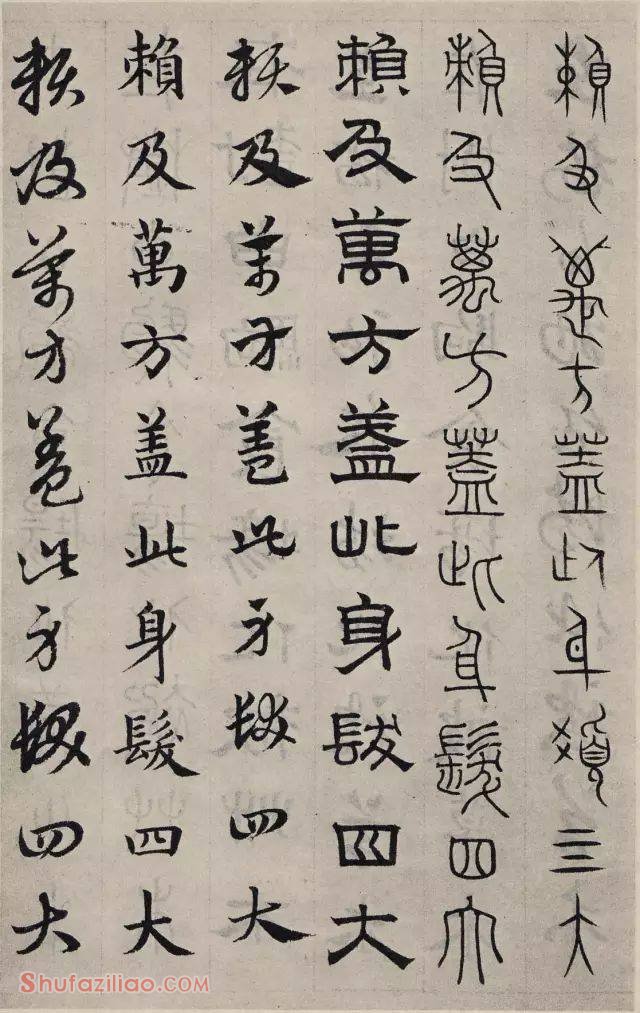 賴及萬方蓋此身髮四大
賴及萬方蓋此身髮四大
賴及萬方蓋此身髮四大
賴及萬方蓋此身髮四大
賴及萬方蓋此身髮四大
賴及萬方蓋此身髮四大
Shufaziliao.com